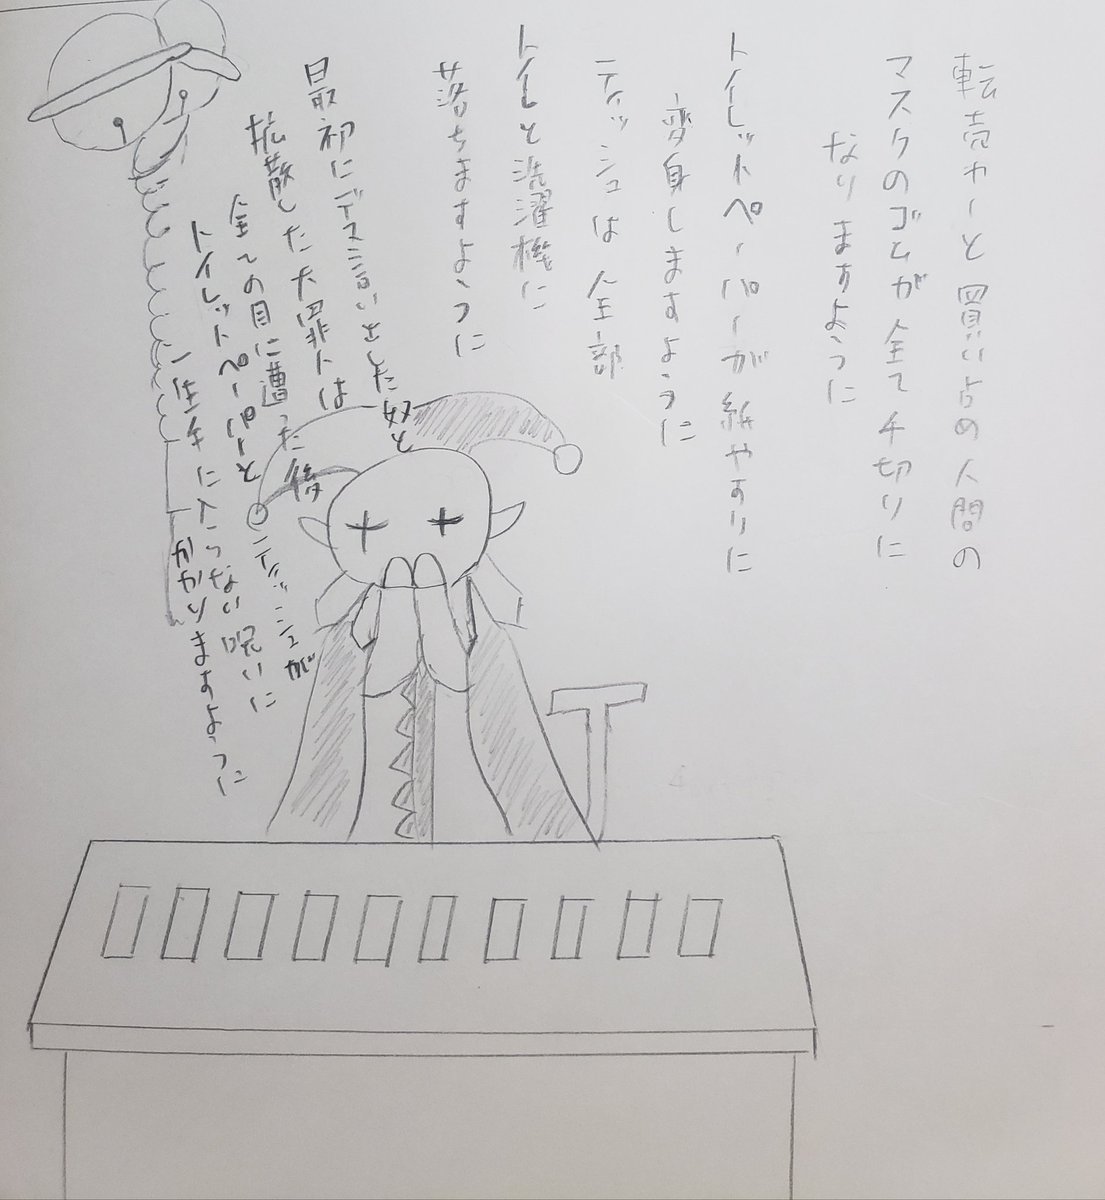 転売ヤーと買い占め人間の
マスクのゴムが全て千切りに
なりますように
トイレットペーパーが紙やすりに
変身しますように
ティッシュは全部
トイレと洗濯機に
落ちますように
最初にデス言いとした奴と
拡散した大罪人は
全ての目に遭った後
トイレットペーパーと
ティッシュが
一生手に入らない呪いに
かかりますように